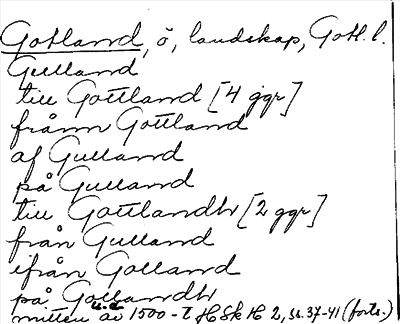 Gotland, ö, landskap, Gotl. l.
Gulland
till Gottland [4 ggr]
frånn Gottland
af Gulland
på Gulland
till Gottlandh [2 ggr]
från Gulland
ifrån Golland
på Gollandh
mitten av 1500-t HSkH 2, ss. 37-41 (forts.)